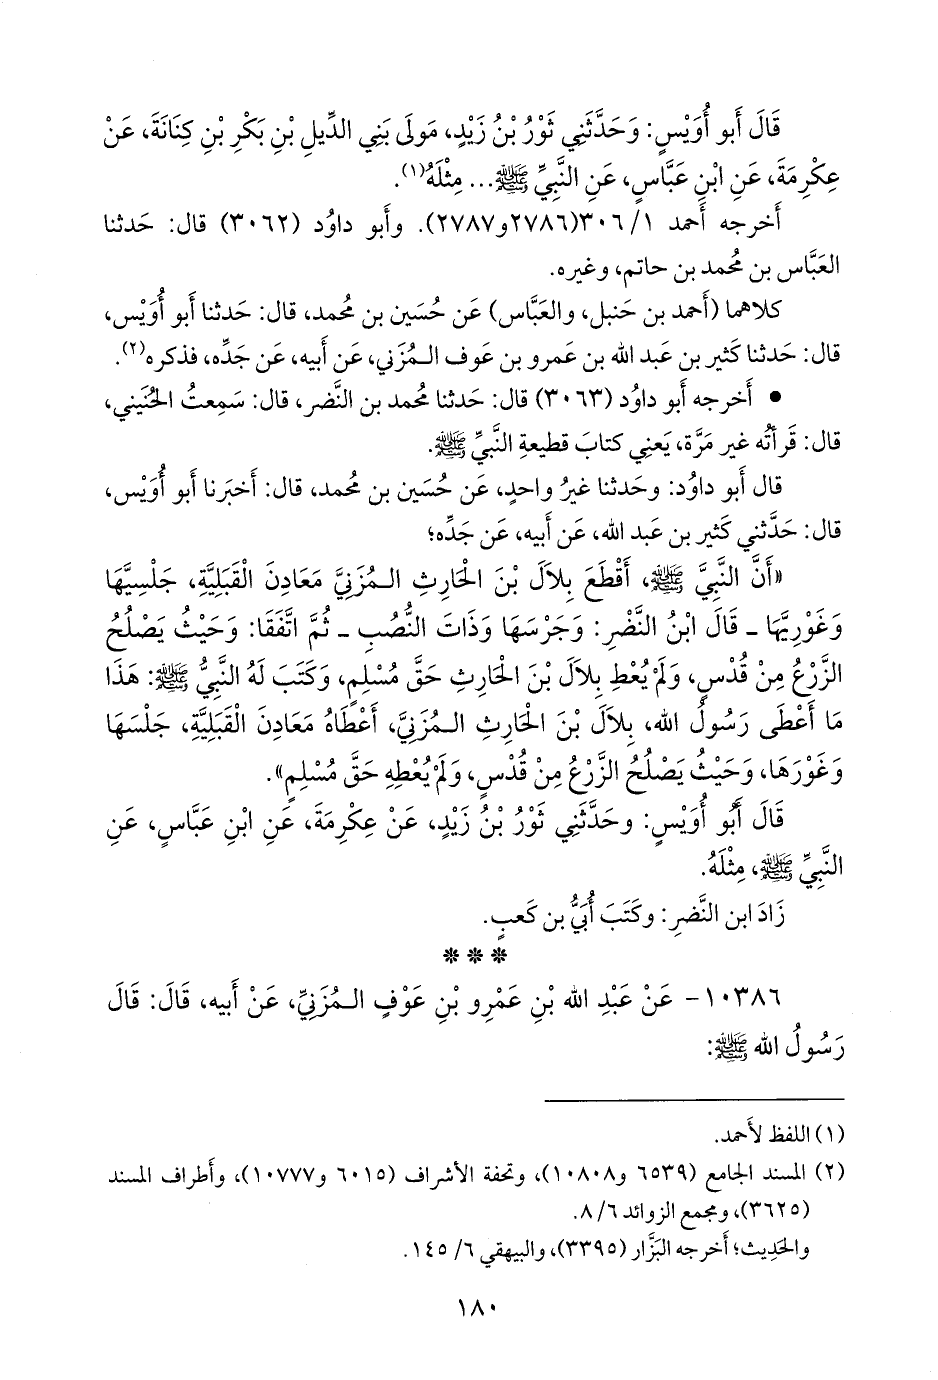 قَالَ أَبو أُوَيْسٍ: وَحَدَّثَنِي ثَوْرُ بْنُ زَيْدٍ، مَولَى بَنِي الدِّيلِ بْنِ بَكْرِ بْنِ كِنَانَةَ، عَنْ
عِكْرِمَةَ، عَنِ ابْنِ عَبَّاسٍ، عَنِ النَّبِيِّ ﷺ... مِثْلَهُ(١).
أَخرجه أَحمد ١/ ٣٠٦(٢٧٨٦ و٢٧٨٧). وأَبو داوُد (٣٠٦٢) قال: حَدثنا
العَبَّاس بن مُحمد بن حاتم، وغيره.
كلاهما (أَحمد بن حَنبل، والعَبَّاس) عَن حُسَين بن مُحمد، قال: حَدثنا أَبو أُوَيْس،
قال: حَدثنا كَثير بن عَبد الله بن عَمرو بن عَوف الـمُزَني، عَن أَبيه، عَن جَدِّه، فذكره(٢).
• أَخرجه أَبو داوُد (٣٠٦٣) قال: حَدثنا مُحمد بن النَّضر، قال: سَمِعتُ الحُنَيني،
قال: قَرأتُه غير مَرَّة، يَعنِي كتابَ قطيعةِ النَّبيِّ ﷺ.
قال أَبو داوُد: وحَدثنا غيرُ واحدٍ، عَن حُسَين بن مُحمد، قال: أَخبَرنا أَبو أُوَيْس،
قال: حَدَّثني كَثير بن عَبد الله، عَن أَبيه، عَن جَدِّه؛
«أَنَّ النَّبِيَّ ﷺ، أَقْطَعَ بِلاَلَ بْنَ الْحَارِثِ الـمُزَنِيَّ مَعَادِنَ الْقَبَلِيَّةِ، جَلْسِيَّهَا
وَغَوْرِيَّهَا ـ قَالَ ابْنُ النَّضْرِ: وَجَرْسَهَا وَذَاتَ النُّصُبِ ـ ثُمَّ اتَّفَقَا: وَحَيْثُ يَصْلُحُ
الزَّرْعُ مِنْ قُدْسٍ، وَلَمْ يُعْطِ بِلاَلَ بْنَ الْحَارِثِ حَقَّ مُسْلِمٍ، وَكَتَبَ لَهُ النَّبِيُّ ﷺ: هَذَا
مَا أَعْطَى رَسُولُ الله، بِلاَلَ بْنَ الْحَارِثِ الـمُزَنِيَّ، أَعْطَاهُ مَعَادِنَ الْقَبَلِيَّةِ، جَلْسَهَا
وَغَوْرَهَا، وَحَيْثُ يَصْلُحُ الزَّرْعُ مِنْ قُدْسٍ، وَلَمْ يُعْطِهِ حَقَّ مُسْلِمٍ».
قَالَ أَبُو أُوَيْسٍ: وحَدَّثَنِي ثَوْرُ بْنُ زَيْدٍ، عَنْ عِكْرِمَةَ، عَنِ ابْنِ عَبَّاسٍ، عَنِ
النَّبِيِّ ﷺ، مِثْلَهُ.
زَادَ ابن النَّضرِ: وكَتَبَ أُبَيُّ بن كَعبٍ.
* * *
١٠٣٨٦- عَنْ عَبْدِ الله بْنِ عَمْرِو بْنِ عَوْفٍ الـمُزَنِيِّ، عَنْ أَبيه، قَالَ: قَالَ
رَسُولُ الله ﷺ:
(١) اللفظ لأَحمد.
(٢) المسند الجامع (٦٥٣٩ و١٠٨٠٨)، وتحفة الأشراف (٦٠١٥ و١٠٧٧٧)، وأطراف المسند
(٣٦٢٥)، ومجمع الزوائد ٦/ ٨.
والحَدِيث؛ أخرجه البَزَّار (٣٣٩٥)، والبيهقي ٦/ ١٤٥.
١٨٠